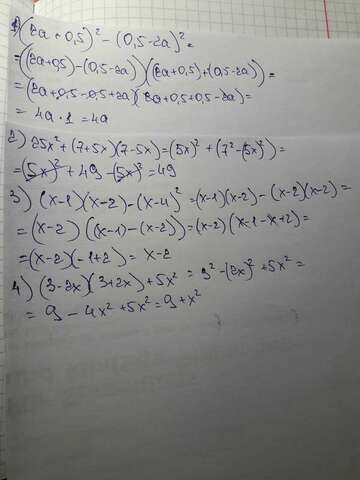 1) (2a + 0,5)² - (0,5 - 2a)² =
= ((2a + 0,5) - (0,5 - 2a)) ((2a + 0,5) + (0,5 - 2a)) =
= (2a + 0,5 - 0,5 + 2a)(2a + 0,5 + 0,5 - 2a) =
= 4a · 1 = 4a
2) 25x² + (7 + 5x)(7 - 5x) = (5x)² + (7² - (5x)²) =
= (5x)² + 49 - (5x)² = 49
3) (x - 1)(x - 2) - (x - 4)² = (x - 1)(x - 2) - (x - 2)(x - 2) =
= (x - 2) ((x - 1) - (x - 2)) = (x - 2)(x - 1 - x + 2) =
= (x - 2)(-1 + 2) = x - 2
4) (3 - 2x)(3 + 2x) + 5x² = 3² - (2x)² + 5x² =
= 9 - 4x² + 5x² = 9 + x²